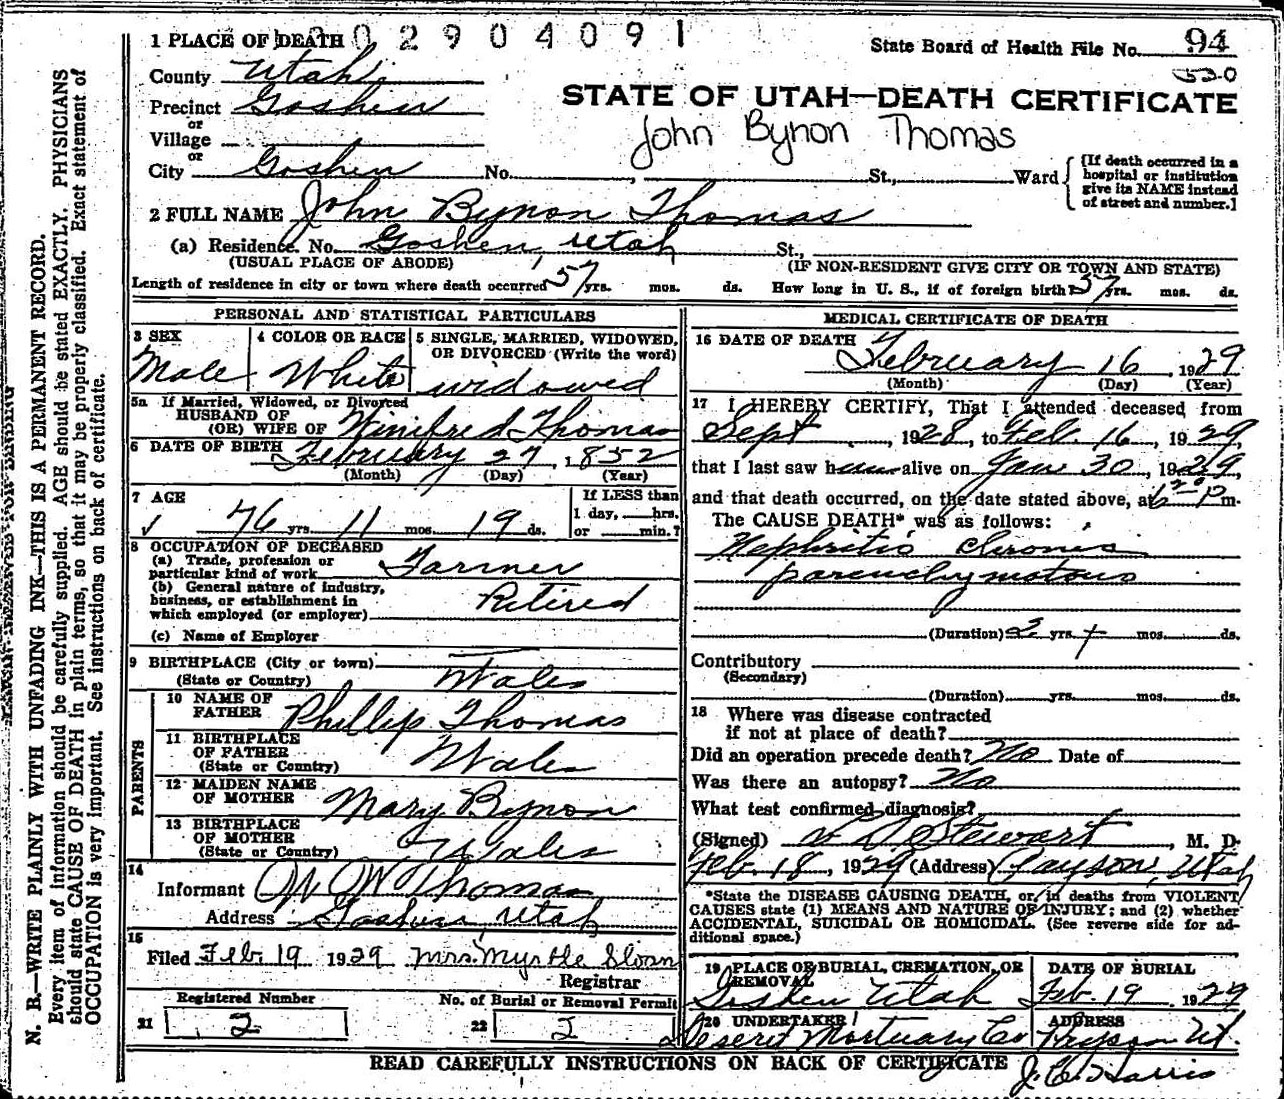 002904091
1 PLACE OF DEATH
State Board of Health File No. 94
530
County Utah
Precinct Goshen
or
Village
or
City Goshen No. , St., Ward
STATE OF UTAH—DEATH CERTIFICATE
John Bynon Thomas
[If death occurred in a
hospital or institution
give its NAME instead
of street and number.]
2 FULL NAME John Bynon Thomas
(a) Residence. No. Goshen, Utah St.,
(USUAL PLACE OF ABODE) (IF NON-RESIDENT GIVE CITY OR TOWN AND STATE)
Length of residence in city or town where death occurred 57 yrs. mos. ds. How long in U. S., if of foreign birth? 57 yrs. mos. ds.
PERSONAL AND STATISTICAL PARTICULARS
3 SEX 4 COLOR OR RACE 5 SINGLE, MARRIED, WIDOWED,
OR DIVORCED (Write the word)
Male White widowed
5a If Married, Widowed, or Divorced
HUSBAND OF
(OR) WIFE OF Winifred Thomas
6 DATE OF BIRTH February 27, 1852
(Month) (Day) (Year)
7 AGE If LESS than
1 day, hrs.
√ 76 yrs. 11 mos. 19 ds. or min.?
8 OCCUPATION OF DECEASED
(a) Trade, profession or
particular kind of work Farmer
(b) General nature of industry,
business, or establishment in
which employed (or employer) Retired
(c) Name of Employer
9 BIRTHPLACE (City or town)
(State or Country) Wales
PARENTS
10 NAME OF
FATHER Phillip Thomas
11 BIRTHPLACE
OF FATHER
(State or Country) Wales
12 MAIDEN NAME
OF MOTHER Mary Bynon
13 BIRTHPLACE
OF MOTHER
(State or Country) Wales
14
Informant W W Thomas
Address Goshen, Utah
15
Filed Feb 19 1929 Mrs. Myrtle Sloan
Registrar
Registered Number No. of Burial or Removal Permit
21 2 22 2
MEDICAL CERTIFICATE OF DEATH
16 DATE OF DEATH
February 16, 1929
(Month) (Day) (Year)
17 I HEREBY CERTIFY, That I attended deceased from
Sept , 1928, to Feb. 16, 1929,
that I last saw him alive on Jan 30, 1929,
and that death occurred, on the date stated above, at 6 20 P m.
The CAUSE DEATH* was as follows:
Nephritis Chronic
parenchymatous
(Duration) 2 yrs + mos. ds.
Contributory
(Secondary)
(Duration) yrs. mos. ds.
18 Where was disease contracted
if not at place of death?
Did an operation precede death? No Date of
Was there an autopsy? No
What test confirmed diagnosis?
(Signed) Stewart, M. D.
Feb. 18, 1929 (Address) Payson, Utah
*State the DISEASE CAUSING DEATH, or, in deaths from VIOLENT
CAUSES state (1) MEANS AND NATURE OF INJURY; and (2) whether
ACCIDENTAL, SUICIDAL OR HOMICIDAL. (See reverse side for ad-
ditional space.)
19 PLACE OF BURIAL, CREMATION, OR
REMOVAL
Goshen Utah
DATE OF BURIAL
Feb 19, 1929
20 UNDERTAKER ADDRESS
Deseret Mortuary Co Payson Ut.
READ CAREFULLY INSTRUCTIONS ON BACK OF CERTIFICATE J. C. Harris
N. B.—WRITE PLAINLY WITH UNFADING INK—THIS IS A PERMANENT RECORD.
Every item of information should be carefully supplied. AGE should be stated EXACTLY. PHYSICIANS
should state CAUSE OF DEATH in plain terms, so that it may be properly classified. Exact statement of
OCCUPATION is very important. See instructions on back of certificate.